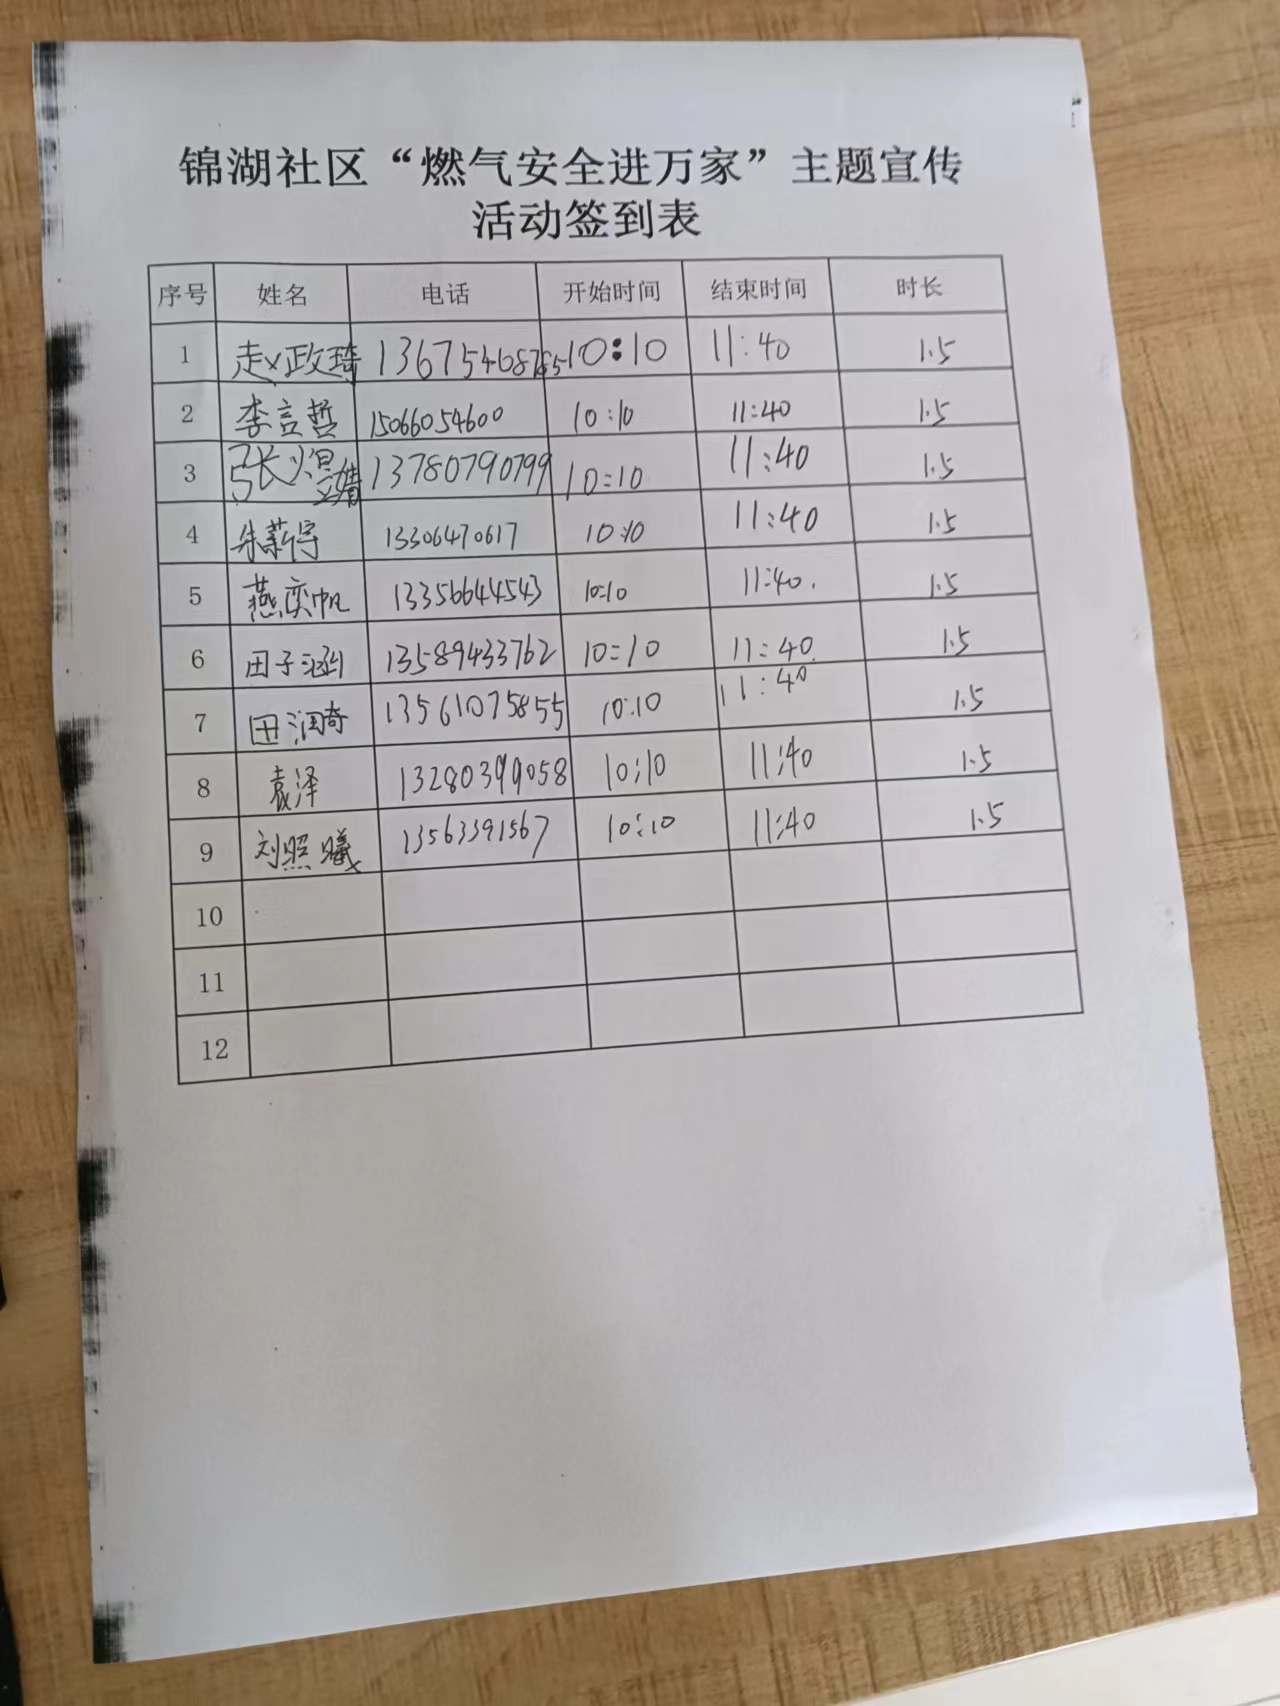 锦湖社区“燃气安全进万家”主题宣传
活动签到表
序号 姓名 电话 开始时间 结束时间 时长
1 赵政琦 13675468785 10:10 11:40 1.5
2 李言哲 15066054600 10:10 11:40 1.5
3 张煜婧 13780790799 10:10 11:40 1.5
4 朱薪宇 13306470617 10:10 11:40 1.5
5 燕奕帆 13356644543 10:10 11:40. 1.5
6 田子涵 13589433762 10:10 11:40 1.5
7 田润奇 13561075855 10:10 11:40 1.5
8 袁泽 13280399058 10:10 11:40 1.5
9 刘照曦 13563391567 10:10 11:40 1.5
10
11
12